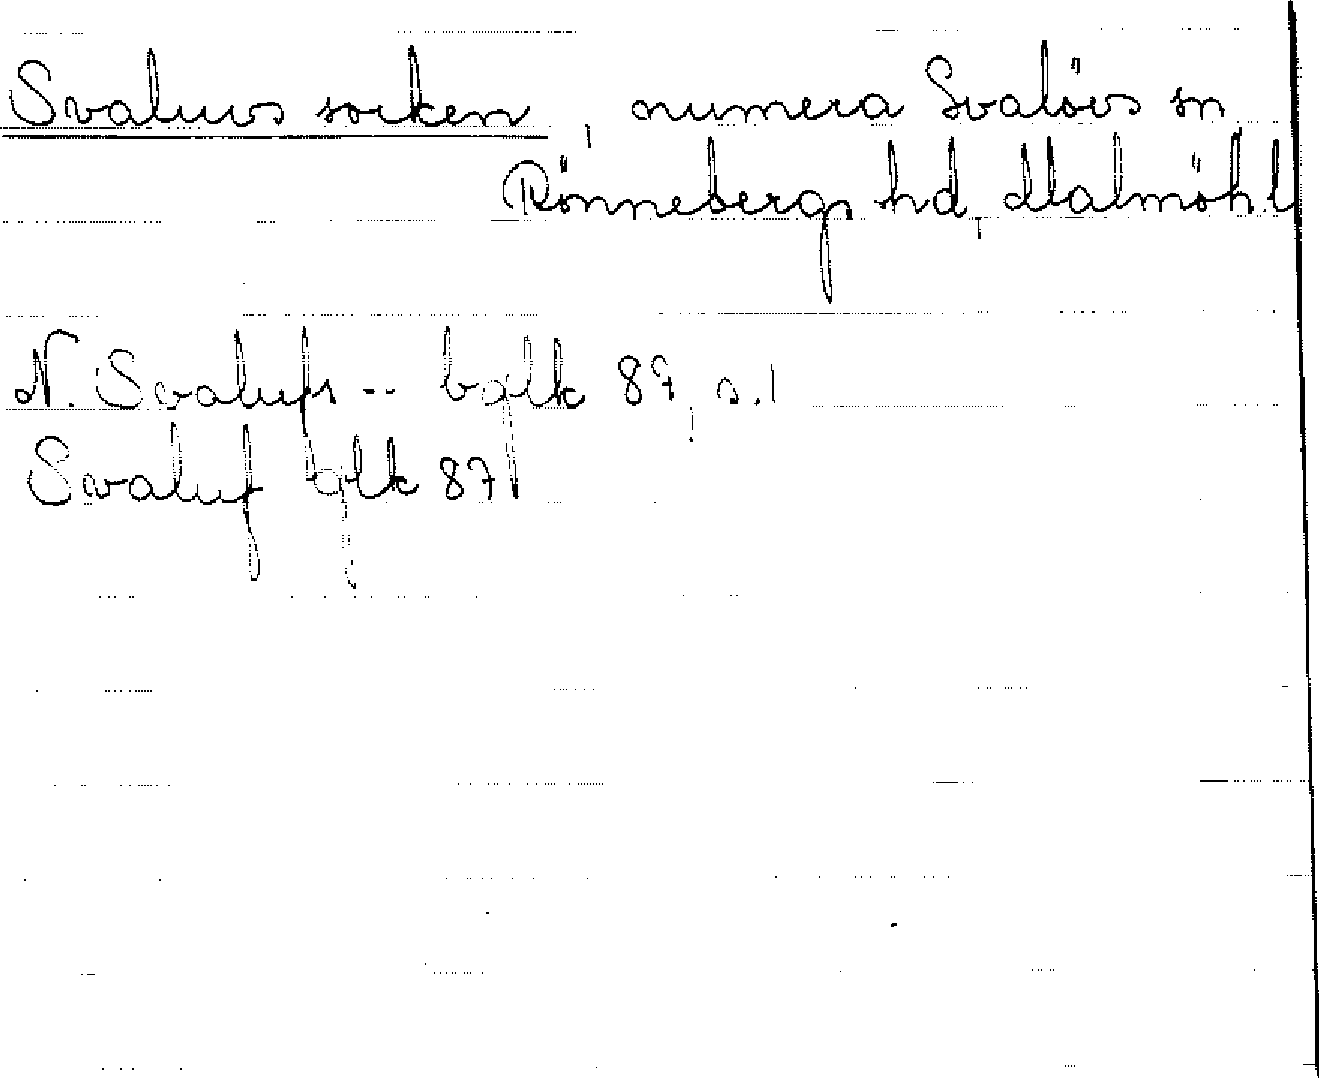 Svaluvs socken, numera Svalövs sn
Rönnebergs hd, Malmöhl
N. Svalufs -- bglk 87, s. 1
Svaluf glk 87